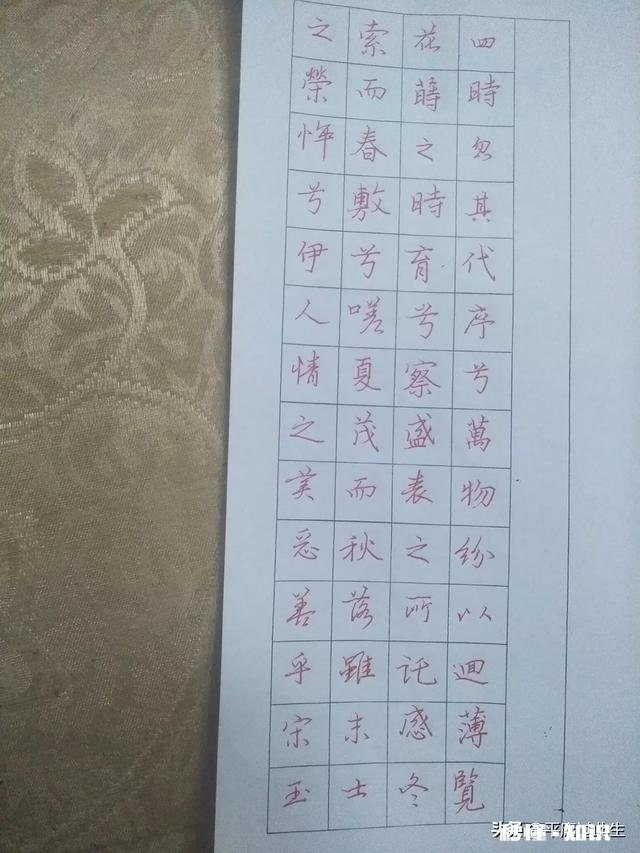 四時忽其代序兮萬物紛以迴薄覽
花蒔之時育兮察盛衰之所託感冬
索而春敷兮嗟夏茂而秋落雖末士
之榮忰兮伊人情之美惡善乎宋玉
秒懂·知识